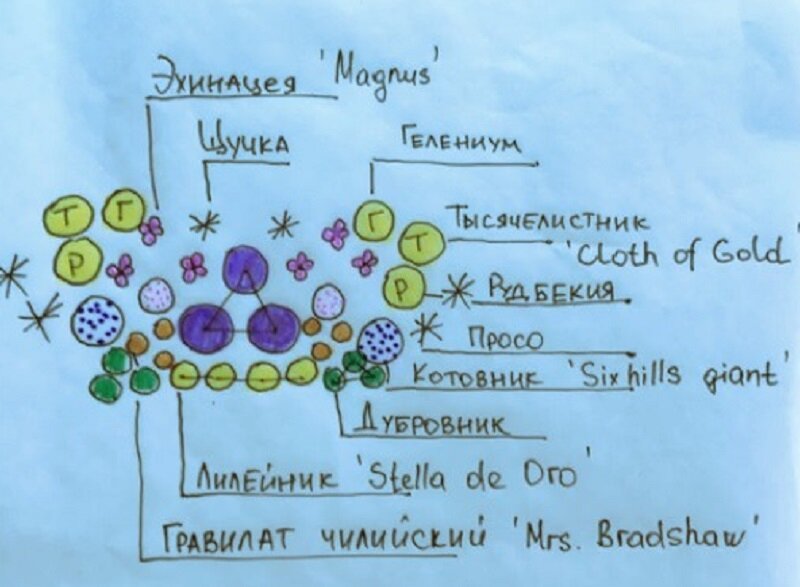 Эхинацея 'Magnus'
Щучка
Гелениум
Т Г Г
Тысячелистник
Т
'Cloth of Gold'
Р Р
Рудбекия
Просо
Котовник 'Six hills giant'
Дубровник
Лилейник 'Stella de Oro'
Гравилат чилийский 'Mrs. Bradshaw'